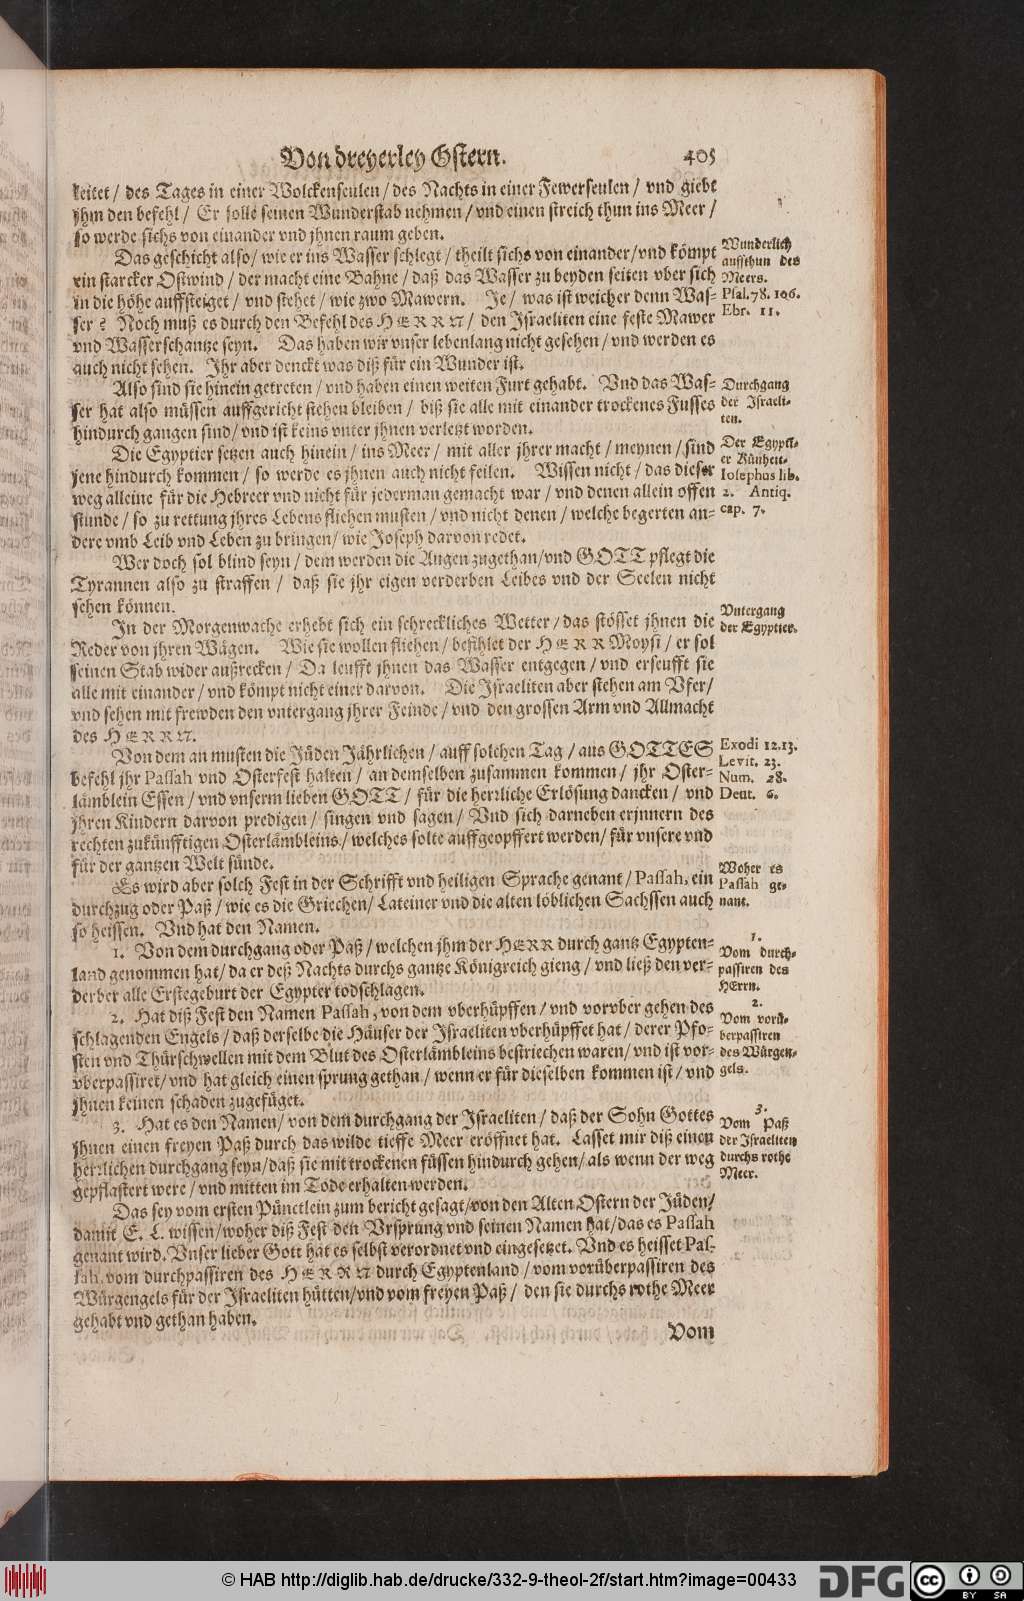 Von dreyerley Ostern. 405
leitet / des Tages in einer Wolckenseulen / des Nachts in einer Fewerseulen / vnd giebt
jhm den befehl / Er solle seinen Wunderstab nehmen / vnd einen streich thun ins Meer /
so werde sichs von einander vnd jhnen raum geben.
Das geschicht also / wie er ins Wasser schlegt / theilt sichs von einander / vnd kömpt
ein starcker Ostwind / der macht eine Bahne / daß das Wasser zu beyden seiten vber sich
in die höhe auffsteiget / vnd stehet / wie zwo Mawern. Je / was ist weicher denn Was-
ser? Noch muß es durch den Befehl des HERRN / den Israeliten eine feste Mawer
vnd Wasserschantze seyn. Das haben wir vnser lebenlang nicht gesehen / vnd werden es
auch nicht sehen. Ihr aber denckt was diß für ein Wunder ist.
Wunderlich
auffthun des
Meers.
Psal. 78. 106.
Ebr. 11.
Also sind sie hinein getreten / vnd haben einen weiten Furt gehabt. Vnd das Was-
ser hat also müssen auffgericht stehen bleiben / biß sie alle mit einander trockenes Fusses
hindurch gangen sind / vnd ist keins vnter jhnen verletzt worden.
Durchgang
der Israeli-
ten.
Die Egyptier setzen auch hinein / ins Meer / mit aller jhrer macht / meynen / sind
jene hindurch kommen / so werde es jhnen auch nicht feilen. Wissen nicht / das dieser
weg alleine für die Hebreer vnd nicht für jederman gemacht war / vnd denen allein offen
stunde / so zu rettung jhres Lebens fliehen musten / vnd nicht denen / welche begerten an-
dere vmb Leib vnd Leben zu bringen / wie Joseph darvon redet.
Der Egypti-
er Künheit.
Iosephus lib.
2. Antiq.
cap. 7.
Wer doch sol blind seyn / dem werden die Augen zugethan / vnd GOTT pflegt die
Tyrannen also zu straffen / daß sie jhr eigen verderben Leibes vnd der Seelen nicht
sehen können.
In der Morgenwache erhebt sich ein schreckliches Wetter / das stösset jhnen die
Reder von jhren Wägen. Wie sie wollen fliehen / befihlet der HERR Moysi / er sol
seinen Stab wider außrecken / Da leufft jhnen das Wasser entgegen / vnd erseufft sie
alle mit einander / vnd kömpt nicht einer darvon. Die Israeliten aber stehen am Vfer /
vnd sehen mit frewden den vntergang jhrer Feinde / vnd den grossen Arm vnd Allmacht
des HERRN.
Vntergang
der Egyptier.
Von dem an musten die Jüden Jährlichen / auff solchen Tag / aus GOTTES
befehl jhr Passah vnd Osterfest halten / an demselben zusammen kommen / jhr Oster-
lämblein Essen / vnd vnserm lieben GOTT / für die herrliche Erlösung dancken / vnd
jhren Kindern darvon predigen / singen vnd sagen / Vnd sich darneben erjnnern des
rechten zukünfftigen Osterlämbleins / welches solte auffgeopffert werden / für vnsere vnd
für der gantzen Welt sünde.
Exodi 12. 13.
Levit. 23.
Num. 28.
Deut. 6.
Es wird aber solch Fest in der Schrifft vnd heiligen Sprache genant / Passah, ein
durchzug oder Paß / wie es die Griechen / Lateiner vnd die alten löblichen Sachssen auch
so heissen. Vnd hat den Namen.
Woher es
Passah ge-
nant.
1. Von dem durchgang oder Paß / welchen jhm der HERR durch gantz Egypten-
land genommen hat / da er deß Nachts durchs gantze Königreich gieng / vnd ließ den ver-
derber alle Erstegeburt der Egypter todschlagen.
1.
Vom durch-
passiren des
HErrn.
2. Hat diß Fest den Namen Passah, von dem vberhüpffen / vnd vorvber gehen des
schlagenden Engels / daß derselbe die Häuser der Israeliten vberhüpffet hat / derer Pfo-
sten vnd Thürschwellen mit dem Blut des Osterlämbleins bestriechen waren / vnd ist vor-
vberpassiret / vnd hat gleich einen sprung gethan / wenn er für dieselben kommen ist / vnd
jhnen keinen schaden zugefüget.
2.
Vom vorü-
berpassiren
des Würgen-
gels.
3. Hat es den Namen / von dem durchgang der Israeliten / daß der Sohn Gottes
jhnen einen freyen Paß durch das wilde tieffe Meer eröffnet hat. Lasset mir diß einen
herrlichen durchgang seyn / daß sie mit trockenen füssen hindurch gehen / als wenn der weg
gepflastert were / vnd mitten im Tode erhalten werden.
3.
Vom Paß
der Israeliten
durchs rothe
Meer.
Das sey vom ersten Pünctlein zum bericht gesagt / von den Alten Ostern der Jüden /
damit E. L. wissen / woher diß Fest den Vrsprung vnd seinen Namen hat / das es Passah
genant wird. Vnser lieber Gott hat es selbst verordnet vnd eingesetzet. Vnd es heisset Pas-
sah, vom durchpassiren des HERRN durch Egyptenland / vom vorüberpassiren des
Würgengels für der Israeliten hütten / vnd vom freyen Paß / den sie durchs rothe Meer
gehabt vnd gethan haben.
Vom
© HAB http://diglib.hab.de/drucke/332-9-theol-2f/start.htm?image=00433
DFG
cc BY SA